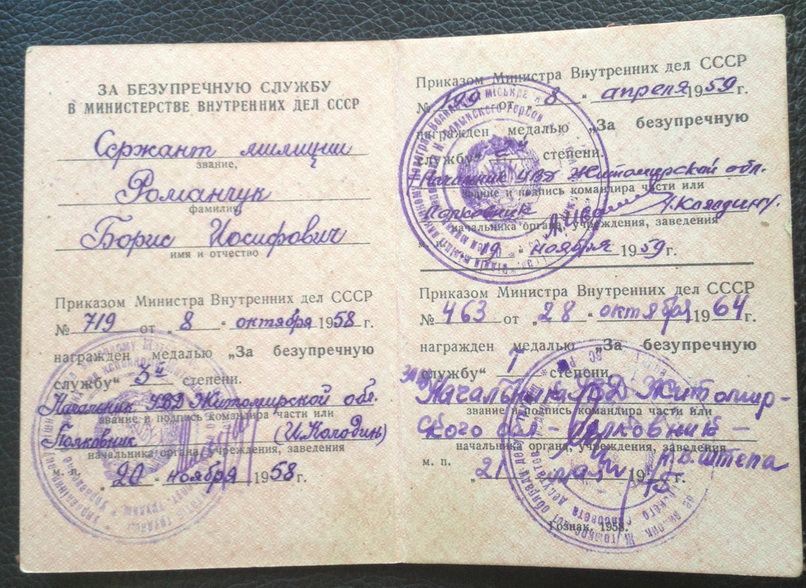 ЗА БЕЗУПРЕЧНУЮ СЛУЖБУ
В МИНИСТЕРСТВЕ ВНУТРЕННИХ ДЕЛ СССР
Сержант милиции
звание,
Романчук
фамилия
Борис Иосифович
имя и отчество
Приказом Министра Внутренних дел СССР
№ 719 от „ 8 “ октября 1958 г.
награжден медалью „За безупречную
службу“ 3й степени.
Начальник УВД Житомирской обл.
звание и подпись командира части или
Полковник
начальника органа, учреждения, заведения
м. п. „20“ ноября 1958 г.
Приказом Министра Внутренних дел СССР
№ от „ 8 “ апреля 1959 г.
награжден медалью „За безупречную
службу“ степени.
Начальник УВД Житомирской обл.
звание и подпись командира части или
Полковник
начальника органа, учреждения, заведения
м. п. „19“ ноября 1959 г.
Приказом Министра Внутренних дел СССР
№ 463 от „ 28 “ октября 1964 г.
награжден медалью „За безупречную
службу“ степени.
Житомир-
звание и подпись командира части или
ского обл - полковник -
начальника органа, учреждения, заведения
Штепа
м. п. „21
Гознак. 1958.